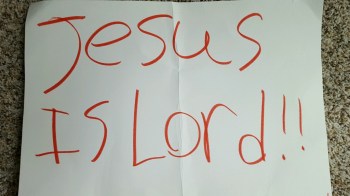 Jesus
Is Lord!!